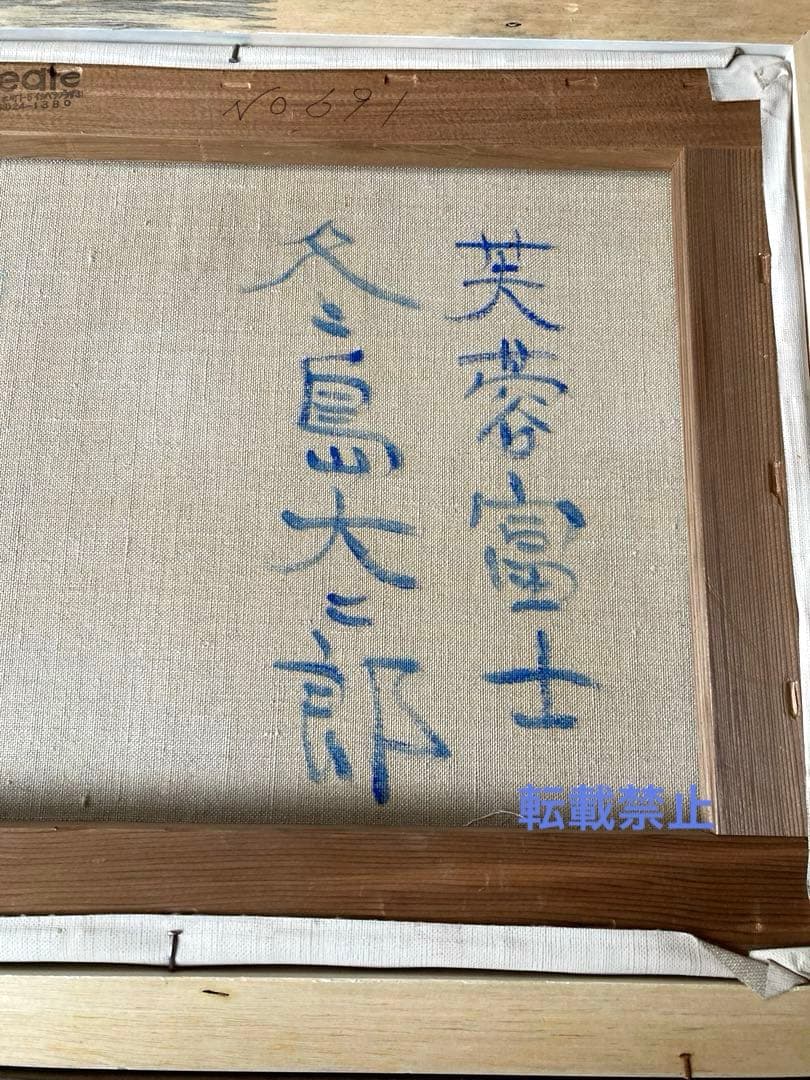 eate
NO691
芙蓉富士
冬島大二郎
転載禁止